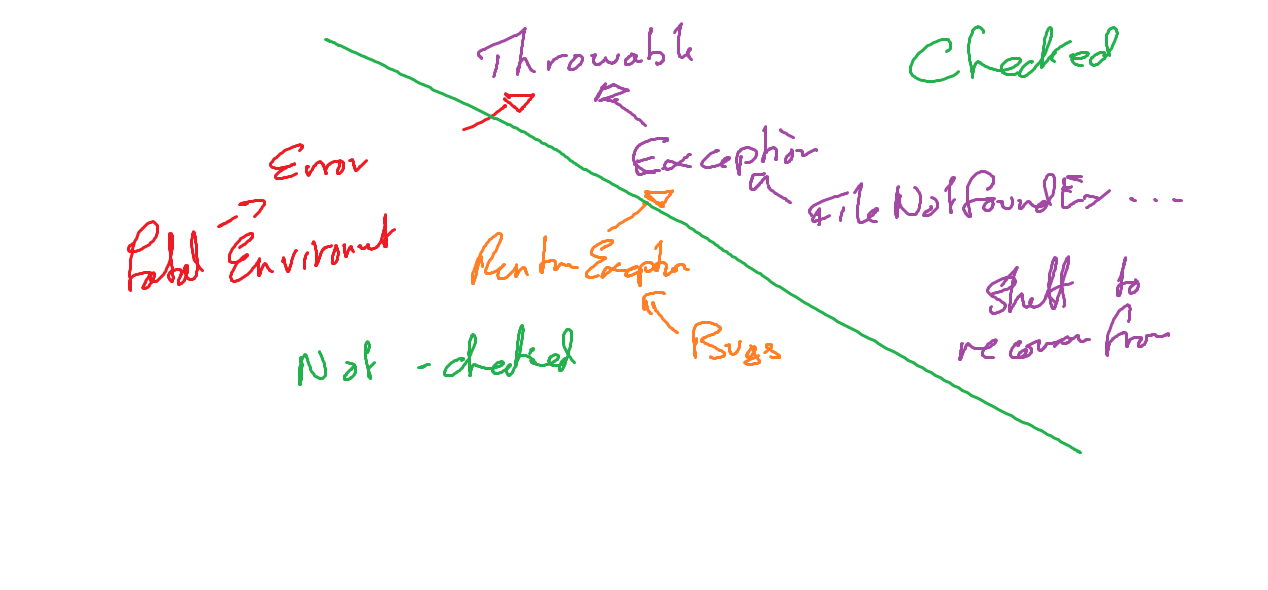 Throwable
Checked
Error
Exception
FileNotFoundEx ...
Fatal Environmut
RuntmException
Sheff to
recover from
Not - checked
Bugs